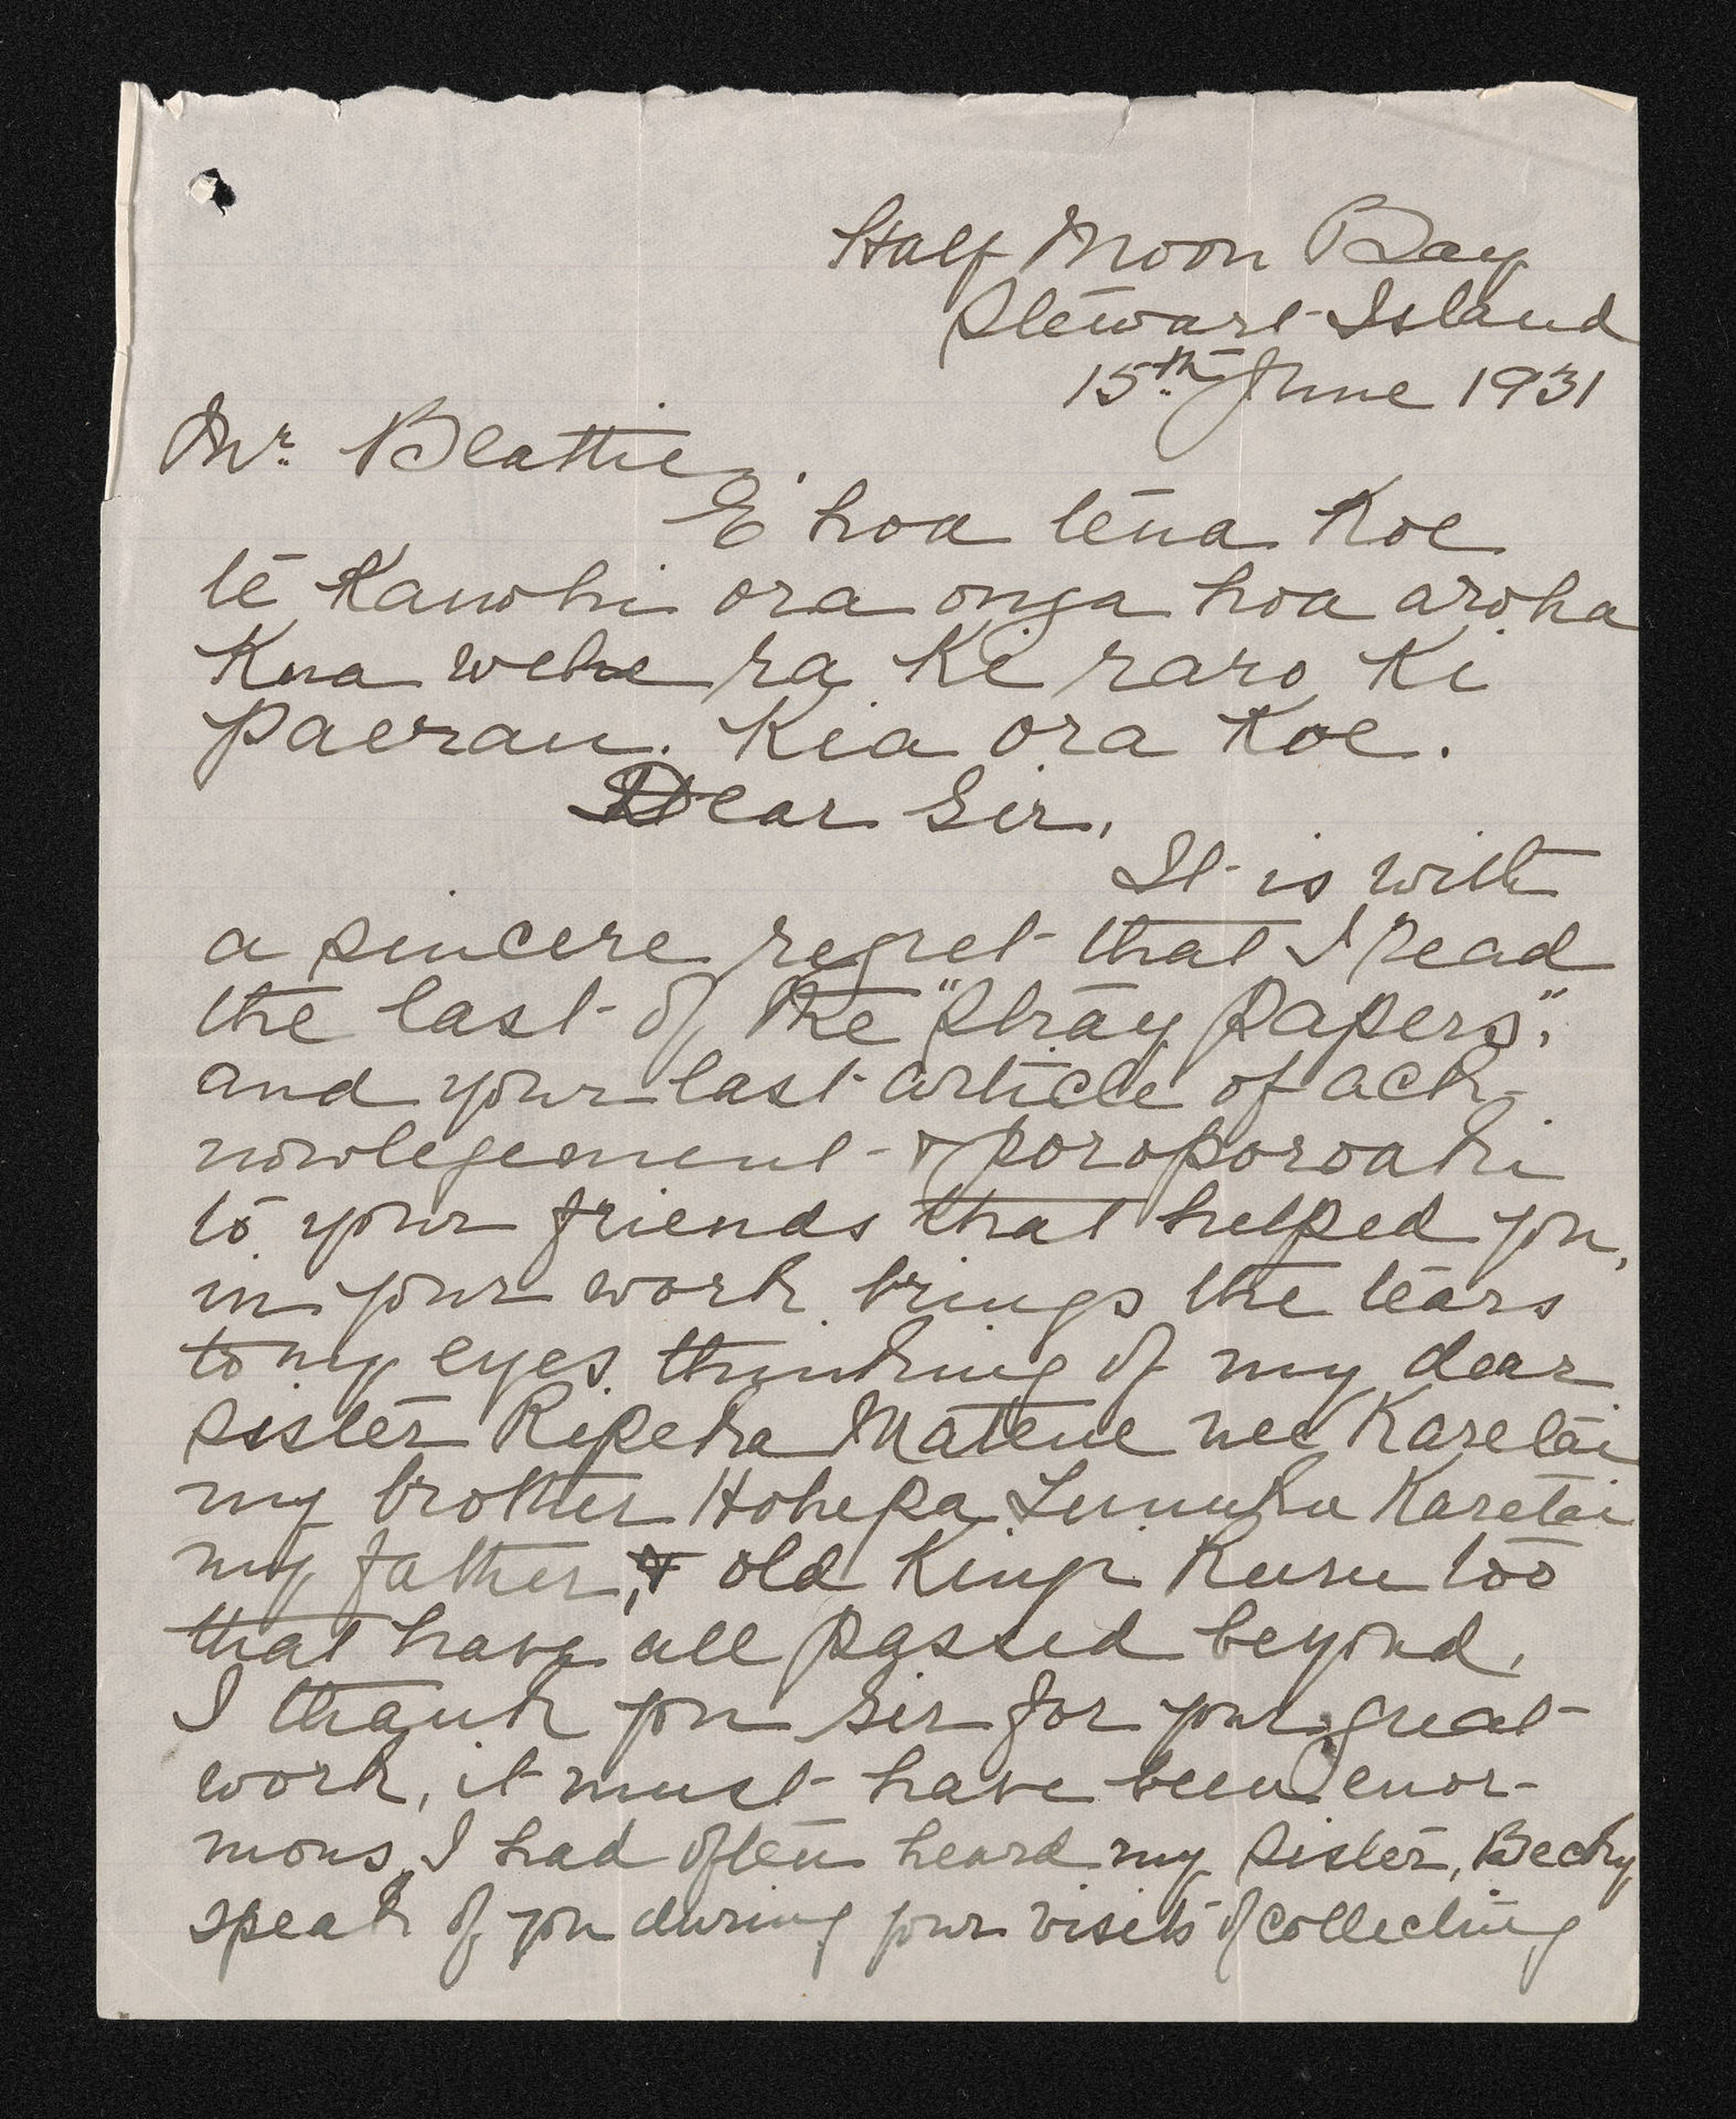 Half Moon Bay
Stewart Island
15th June 1931
Mr. Beattie.
E hoa tena Koe
te Kanohi ora onga hoa aroha
Kua wehe ra Ki raro Ki
Paerau. Kia ora Koe.
Dear Sir,
It is with
a sincere regret that I read
the last of the "Stray Papers".
and your last article of ack-
nowlegement & poroporoaki
to your friends that helped you,
in your work brings the tears
to my eyes thinking of my dear
sister Ripeka Matene nee Karetai
my brother Hohepa Karetai
my father, & old King Ruru too
that have all passed beyond.
I thank you Sir for your great
work, it must have been enor-
mous, I had often heard my sister, Becky
speak of you during your visits of collecting